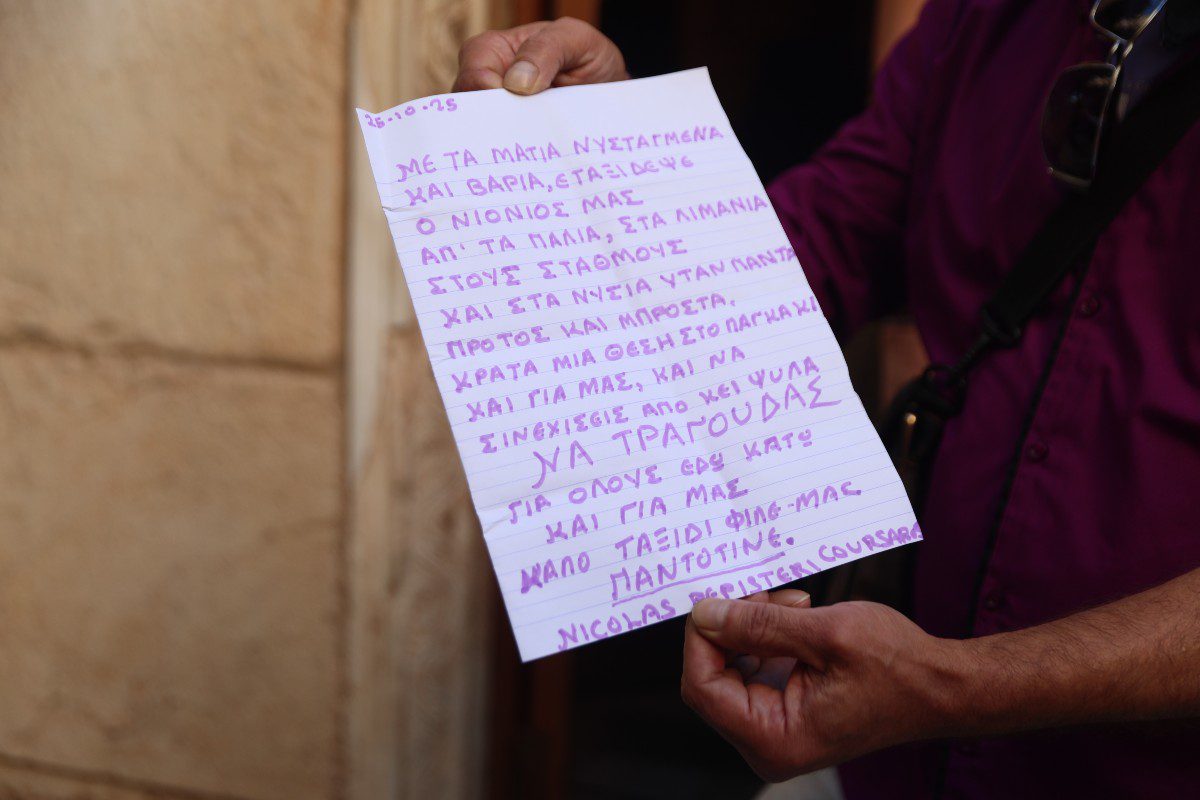 25-10-25
ΜΕ ΤΑ ΜΑΤΙΑ ΝΥΣΤΑΓΜΕΝΑ
ΚΑΙ ΒΑΡΙΑ, ΕΤΑΞΙΔΕΨΕ
Ο ΝΙΟΝΙΟΣ ΜΑΣ
ΑΠ' ΤΑ ΠΑΛΙΑ, ΣΤΑ ΛΙΜΑΝΙΑ
ΣΤΟΥΣ ΣΤΑΘΜΟΥΣ
ΚΑΙ ΣΤΑ ΝΥΣΙΑ ΥΤΑΝ ΠΑΝΤΑ
ΠΡΟΤΟΣ ΚΑΙ ΜΠΡΟΣΤΑ.
ΚΡΑΤΑ ΜΙΑ ΘΕΣΗ ΣΤΟ ΠΑΓΚΑΚΙ
ΚΑΙ ΓΙΑ ΜΑΣ, ΚΑΙ ΝΑ
ΣΙΝΕΧΙΣΕΙΣ ΑΠΟ ΚΕΙ ΨΥΛΑ
ΝΑ ΤΡΑΓΟΥΔΑΣ
ΓΙΑ ΟΛΟΥΣ ΕΔΩ ΚΑΤΩ
ΚΑΙ ΓΙΑ ΜΑΣ
ΚΑΛΟ ΤΑΞΙΔΙ ΦΙΛΕ-ΜΑΣ
ΠΑΝΤΟΤΙΝΕ.
NICOLAS PERISTERI, COURSARE